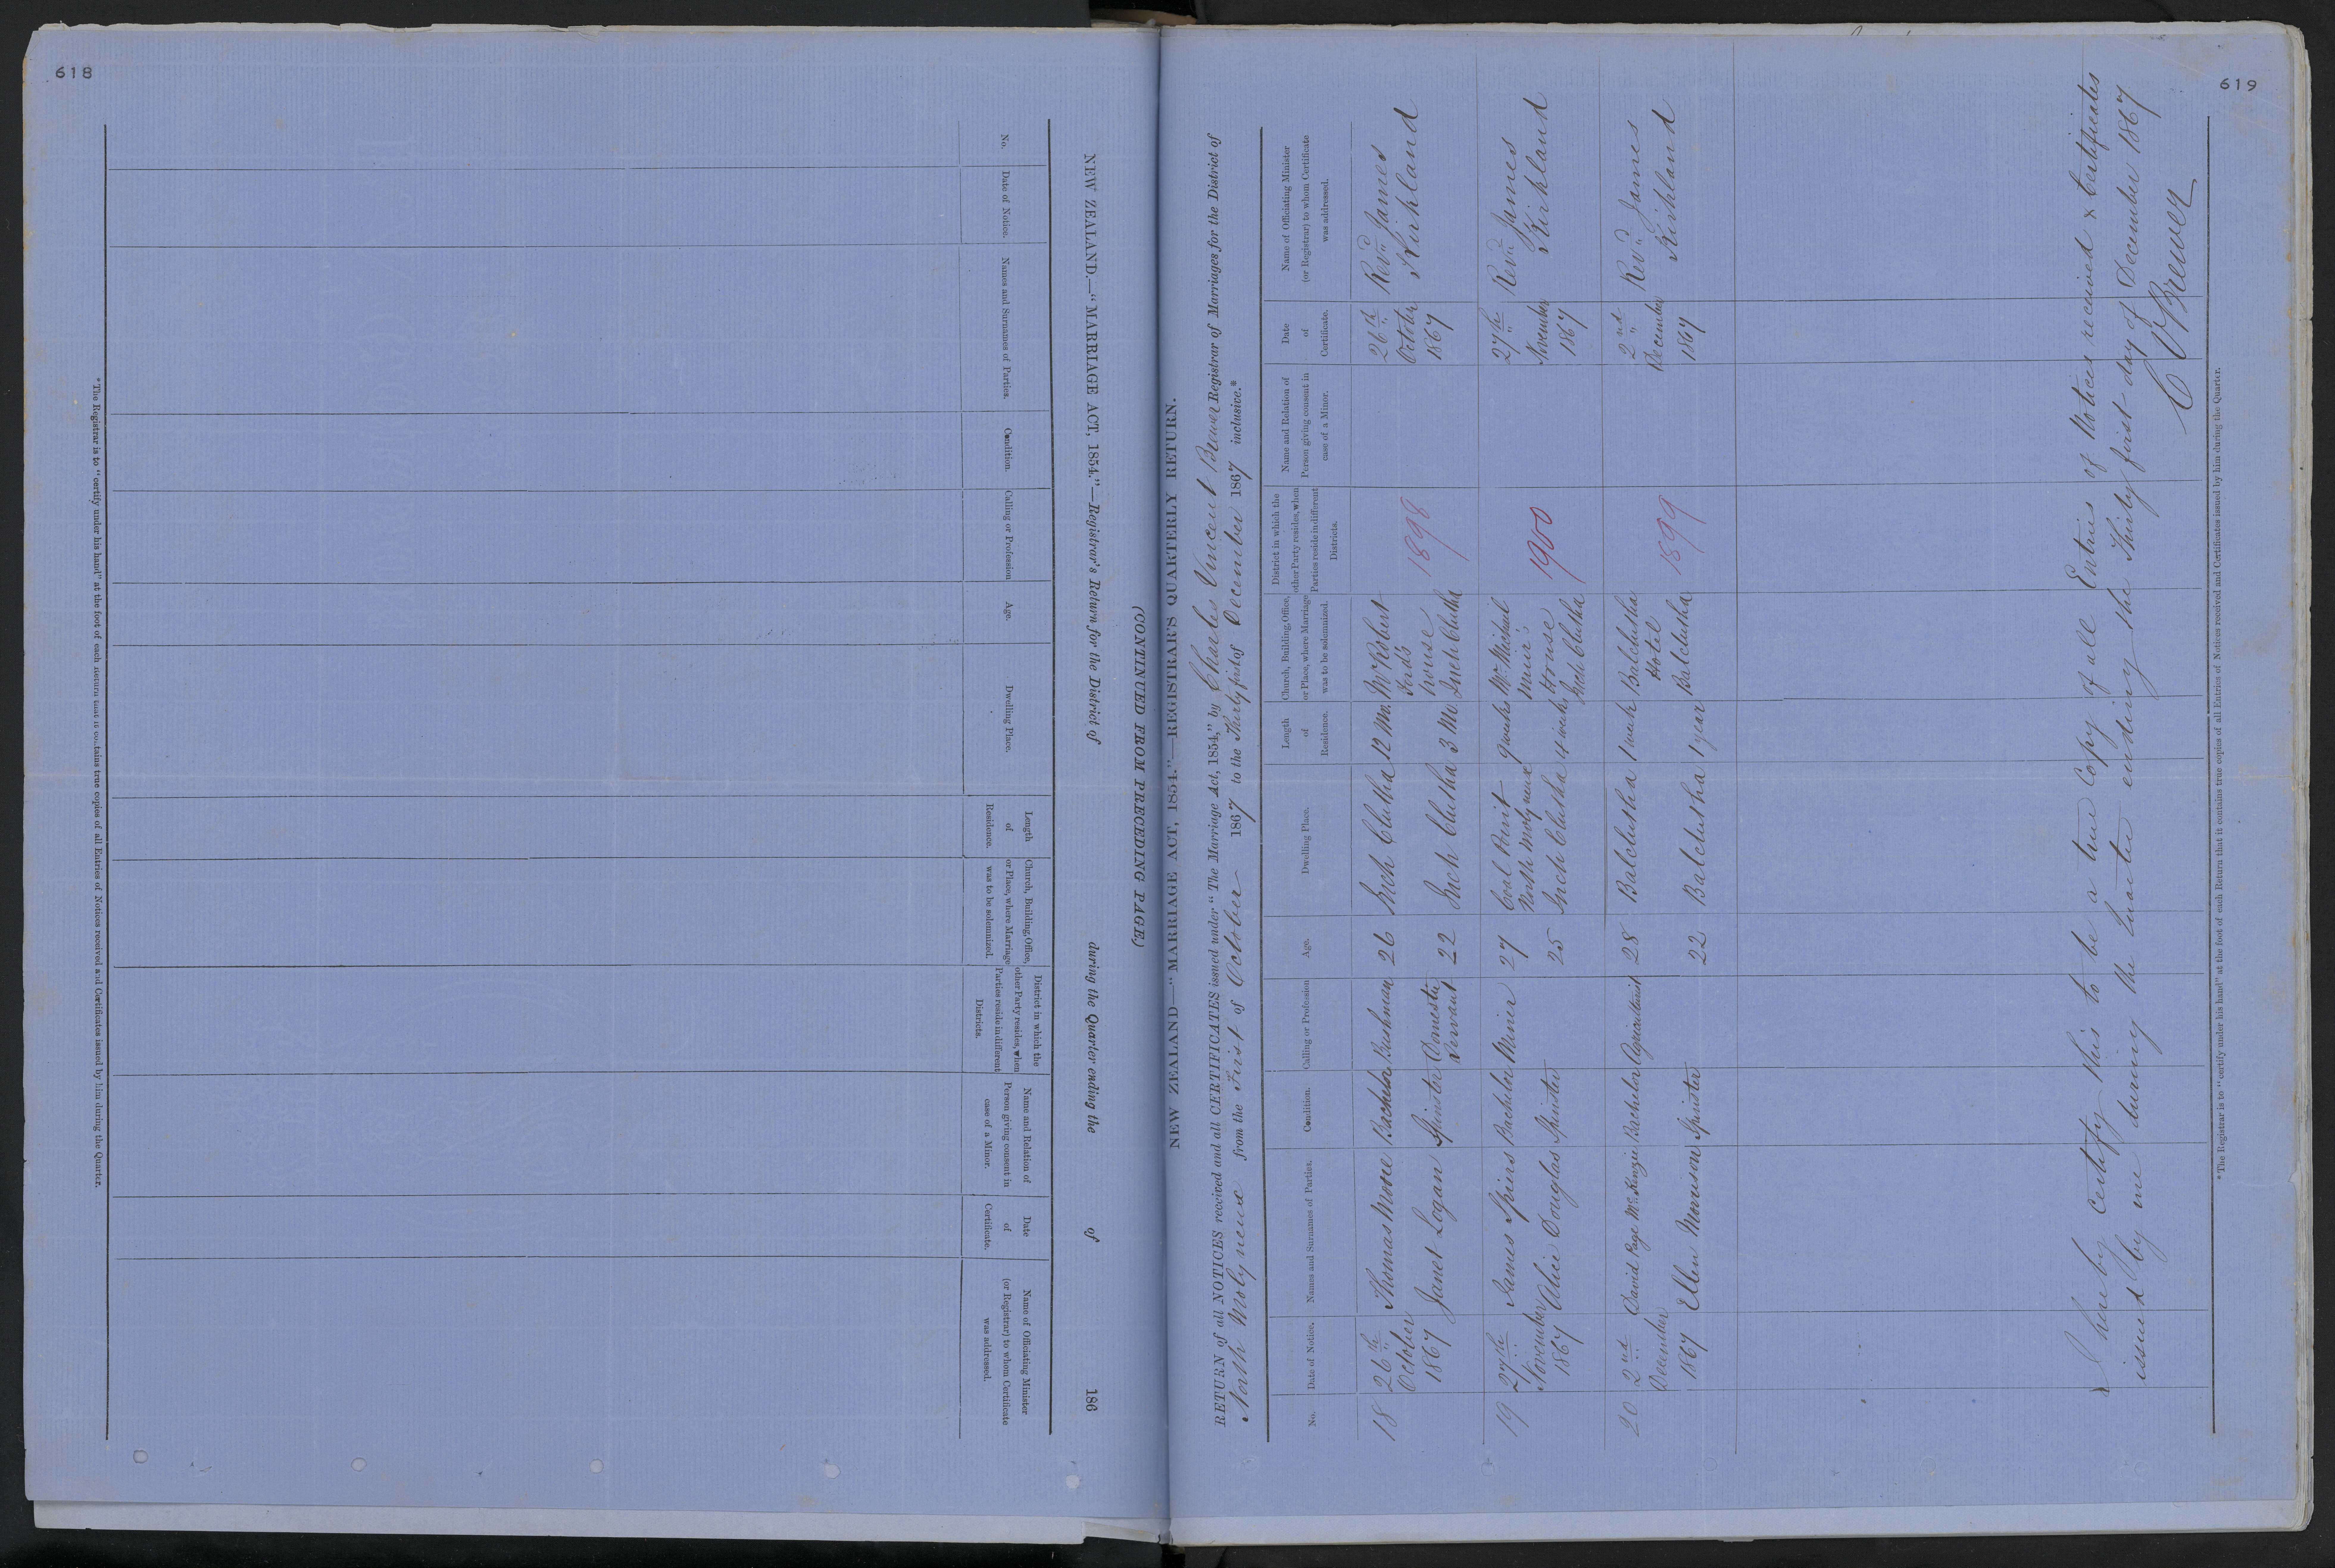 618
NEW ZEALAND.—"MARRIAGE ACT, 1854."—Registrar's Return for the District of during the Quarter ending the of 186
(CONTINUED FROM PRECEDING PAGE.)
No.
Date of Notice.
Names and Surnames of Parties.
Condition.
Calling or Profession
Age.
Dwelling Place.
Length
of
Residence.
Church, Building, Office,
or Place, where Marriage
was to be solemnized.
District in which the
other Party resides, when
Parties reside in different
Districts.
Name and Relation of
Person giving consent in
case of a Minor.
Date
of
Certificate.
Name of Officiating Minister
(or Registrar) to whom Certificate
was addressed.
*The Registrar is to "certify under his hand" at the foot of each return that it contains true copies of all Entries of Notices received and Certificates issued by him during the Quarter.
619
NEW ZEALAND—"MARRIAGE ACT, 1854."—REGISTRAR'S QUARTERLY RETURN.
RETURN of all NOTICES received and all CERTIFICATES issued under "The Marriage Act, 1854," by Charles Vincent Brewer Registrar of Marriages for the District of
North Molyneux from the First of October 1867 to the Thirty first of December 1867 inclusive.*
No.
Date of Notice.
Names and Surnames of Parties.
Condition.
Calling or Profession
Age.
Dwelling Place.
Length
of
Residence.
Church, Building, Office,
or Place, where Marriage
was to be solemnized.
District in which the
other Party resides, when
Parties reside in different
Districts.
Name and Relation of
Person giving consent in
case of a Minor.
Date
of
Certificate.
Name of Officiating Minister
(or Registrar) to whom Certificate
was addressed.
18
26th
October
1867
Thomas More
Janet Logan
Bachelor
Spinster
Bushman
Domestic
Servant
26
22
Inch Clutha
Inch Clutha
12 Mo.
3 Mo
Mr Robert
Ford's
house
Inch Clutha
1898
26th
October
1867
Revd James
Kirkland
19
27th
November
1867
James Spiers
Alice Douglas
Bachelor
Spinster
Miner
27
25
Coal Point
North Molyneux
Inch Clutha
9 weeks
4 weeks
Mr Michael
Muir's
House
Inch Clutha
1900
27th
November
1867
Revd James
Kirkland
20
2nd
December
1867
David Page McKenzie
Ellen Morrison
Bachelor
Spinster
Agriculturist
28
22
Balclutha
Balclutha
1 week
1 year
Balclutha
Hotel
Balclutha
1899
2nd
December
1867
Revd James
Kirkland
I hereby certify this to be a true Copy of all Entries of Notices received & Certificates
issued by me during the Quarter ending the Thirty first day of December 1867
C V Brewer
*The Registrar is to "certify under his hand" at the foot of each Return that it contains true copies of all Entries of Notices received and Certificates issued by him during the Quarter.